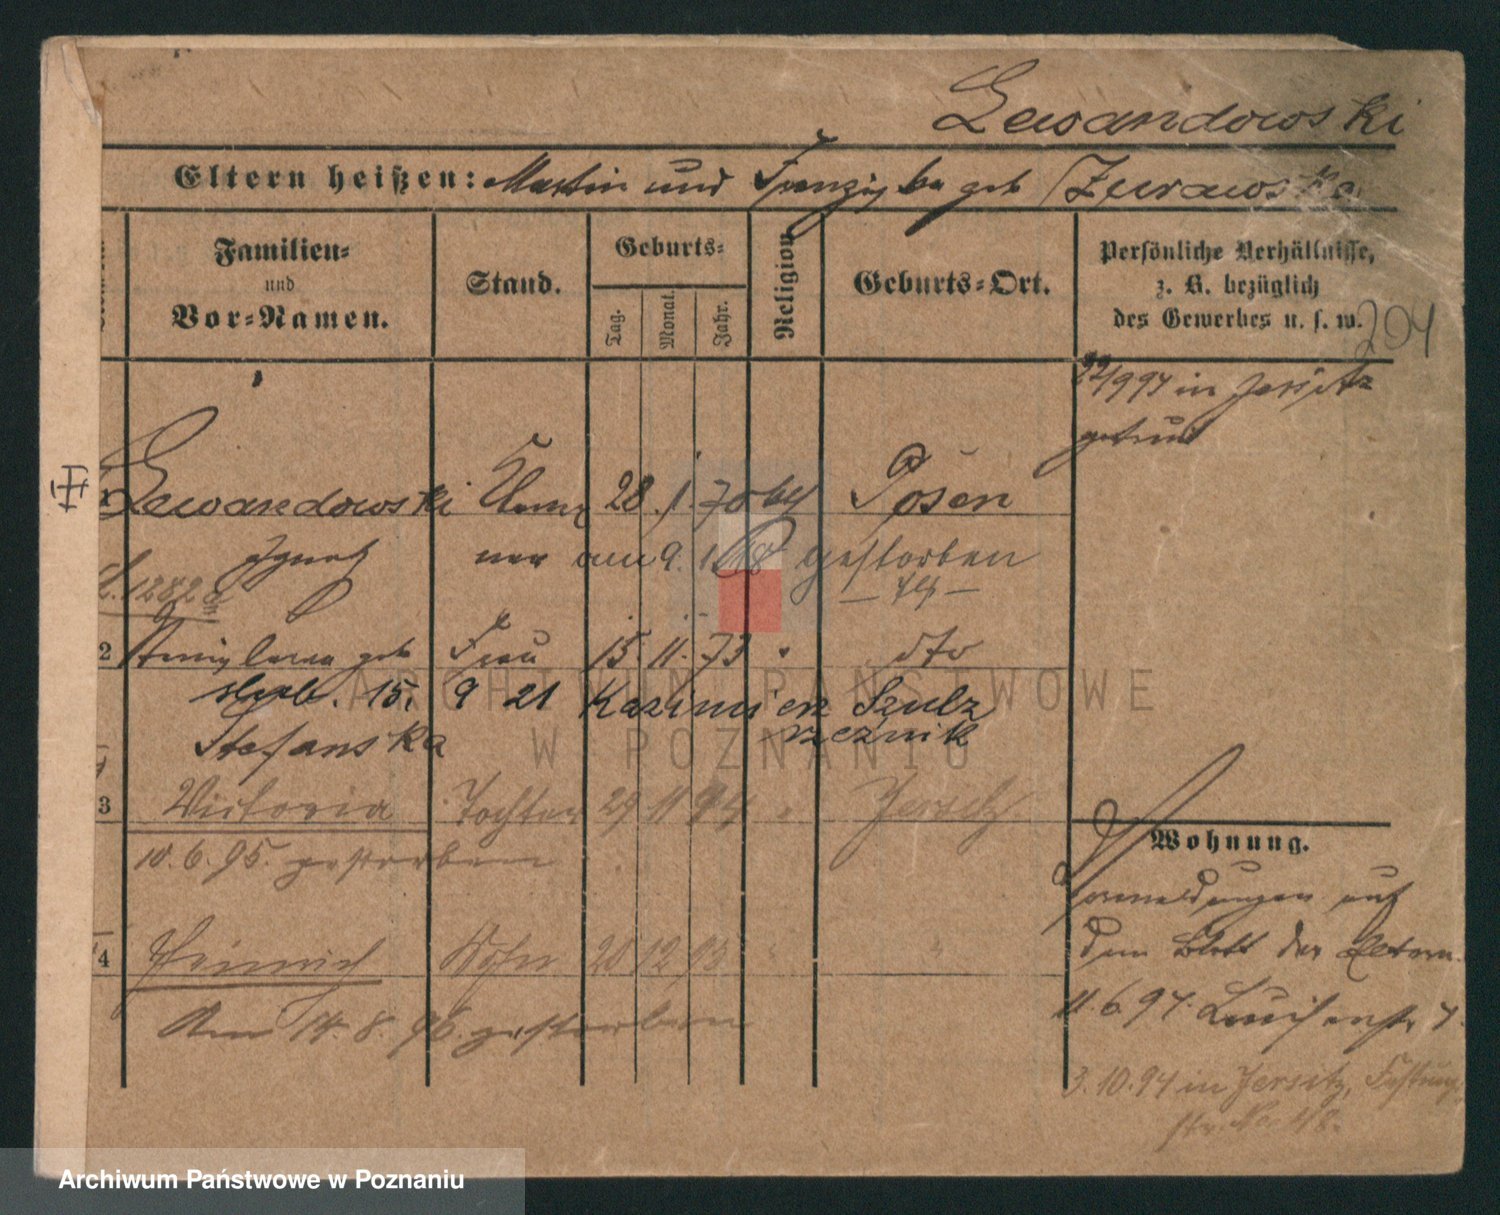 Lewandowski
Eltern heißen: Martin und Franziska geb Zurawska
Familien- und Vor-Namen.
Stand.
Geburts-
Tag.
Monat.
Jahr.
Religion
Geburts-Ort.
Persönliche Verhältnisse,
z. B. bezüglich
des Gewerbes u. s. w.
204
22/9 94 in Jersitz
getraut
1 Lewandowski 28. 1. 70 kth Posen
Ignatz am 9. 1. 08 gestorben
L. 1282a
2 geb Frau 15. 11. 73 " dto
15. 9 21 Kazimierz Szulz
Stefanska rzeźnik
3 Victoria Tochter 29 11 94 " Jersitz
10. 6. 95. gestorben
4 Heinrich Sohn 20 12 93 " "
Am 14. 8. 96. gestorben
Wohnung.
Vormeldungen auf
dem Blatt der Eltern.
11. 6. 94. Louisenstr 7.
3. 10. 94 in Jersitz, Festung
str. No. 48.
ARCHIWUM PAŃSTWOWE
W POZNANIU
Archiwum Państwowe w Poznaniu